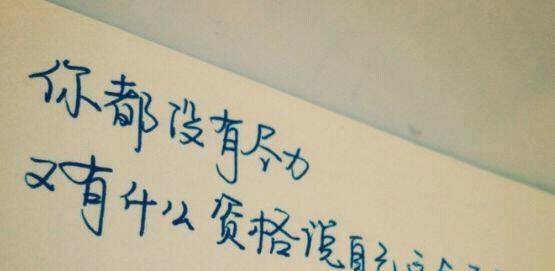 你都没有尽力
又有什么资格说自己